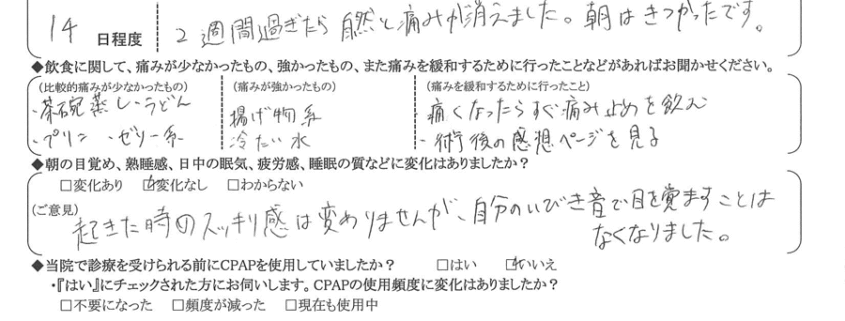 14 日程度 2週間過ぎたら自然と痛みが消えました。朝はきつかったです。
◆飲食に関して、痛みが少なかったもの、強かったもの、また痛みを緩和するために行ったことなどがあればお聞かせください。
(比較的痛みが少なかったもの) (痛みが強かったもの) (痛みを緩和するために行ったこと)
・茶碗蒸し・うどん 揚げ物系 ・痛くなったらすぐ痛み止めを飲む
・プリン ・ゼリー系 冷たい水 ・術後の感想ページを見る
◆朝の目覚め、熟睡感、日中の眠気、疲労感、睡眠の質などに変化はありましたか？
□変化あり ☑変化なし □わからない
(ご意見) 起きた時のスッキリ感は変わりませんが、自分のいびき音で目を覚ますことは
なくなりました。
◆当院で診療を受けられる前にCPAPを使用していましたか？ □はい ☑いいえ
・『はい』にチェックされた方にお伺いします。CPAPの使用頻度に変化はありましたか？
□不要になった □頻度が減った □現在も使用中